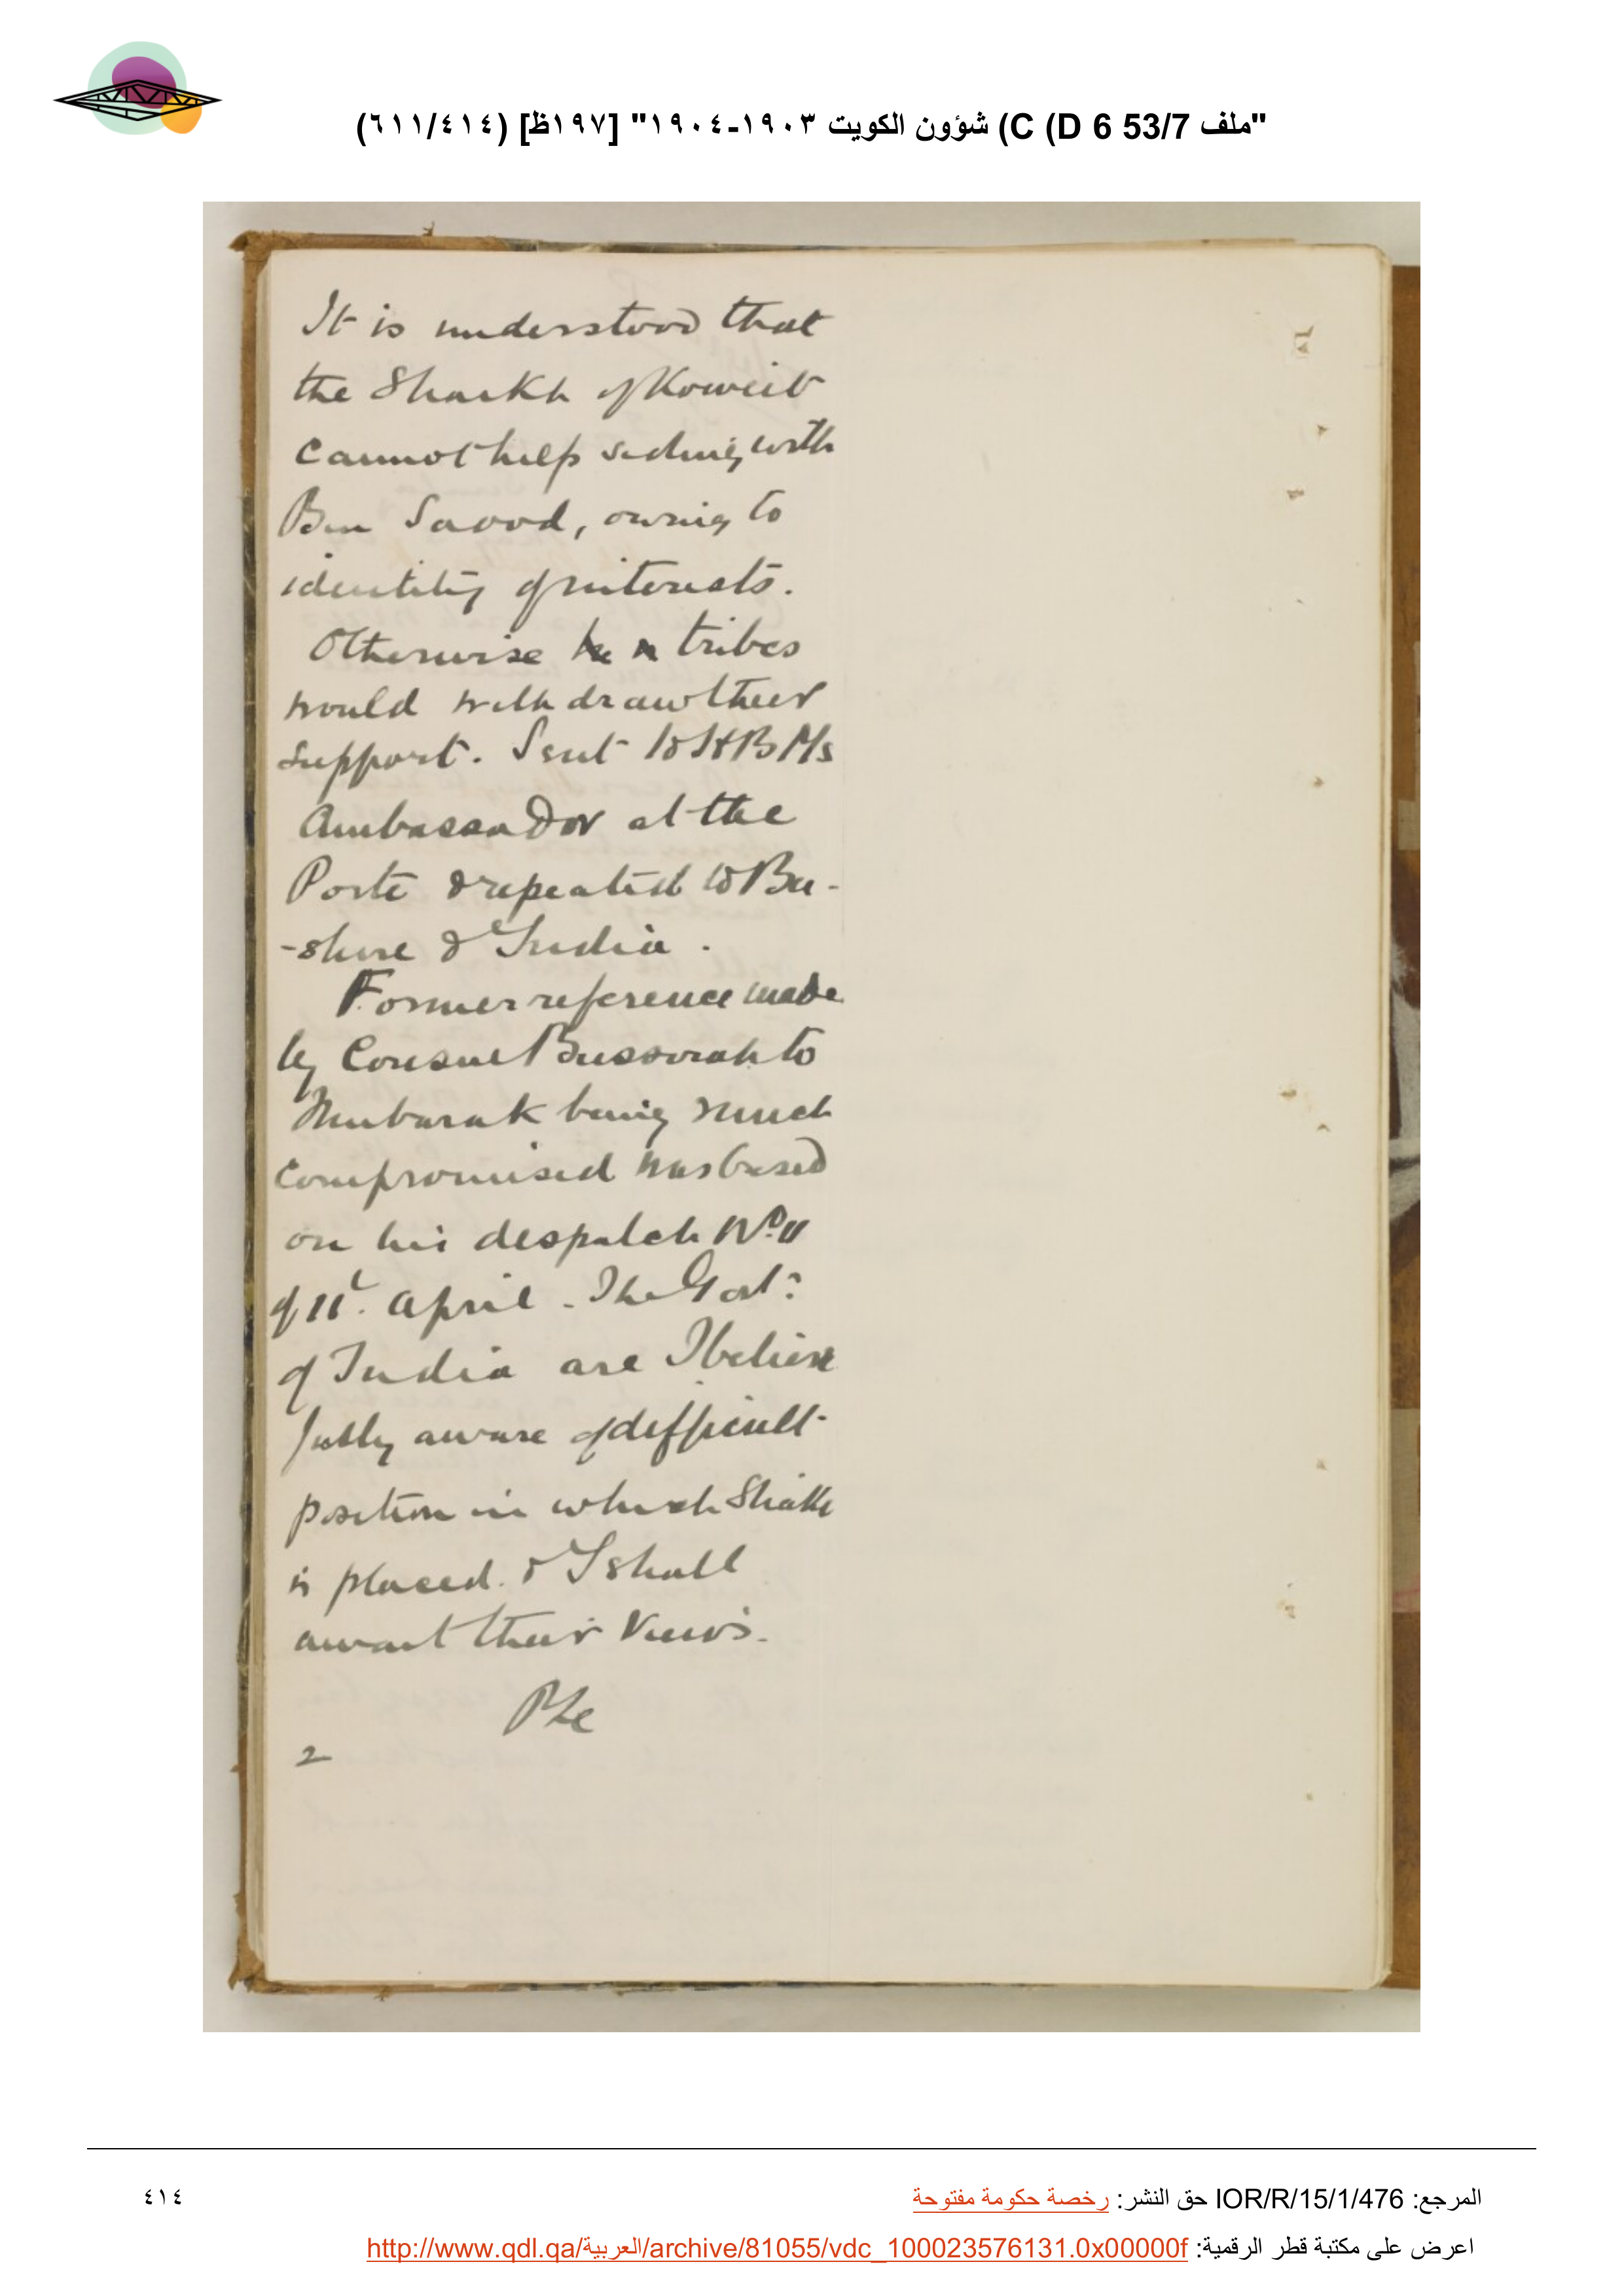 "ملف 53/7 C (D 6) شؤون الكويت ١٩٠٣-١٩٠٤" [١٩٧ظ] (٦١١/٤١٤)
It is understood that
the Shaikh of Koweit
cannot help siding with
Bin Saood, owing to
identity of interests.
Otherwise tribes
would withdraw their
support. Sent to HBM's
Ambassador at the
Porte & repeated to Bu-
-shire & India.
Former reference made
by Consul Bussorah to
Mubarak being much
compromised was based
on his despatch No. 11
of 11th. April - The Govt:
of India are I believe
fully aware of difficult
position in which Shaikh
is placed. & I shall
await their views.
2
المرجع: IOR/R/15/1/476 حق النشر: رخصة حكومة مفتوحة
٤١٤
اعرض على مكتبة قطر الرقمية: http://www.qdl.qa/العربية/archive/81055/vdc_100023576131.0x00000f